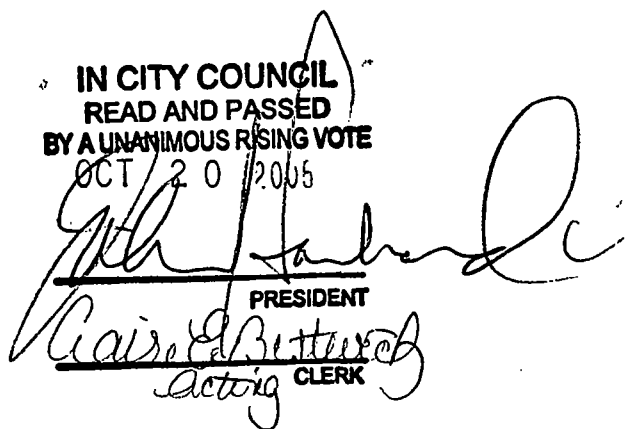 IN CITY COUNCIL
READ AND PASSED
BY A UNANIMOUS RISING VOTE
OCT 20 2005
PRESIDENT
Claire E.
Acting CLERK